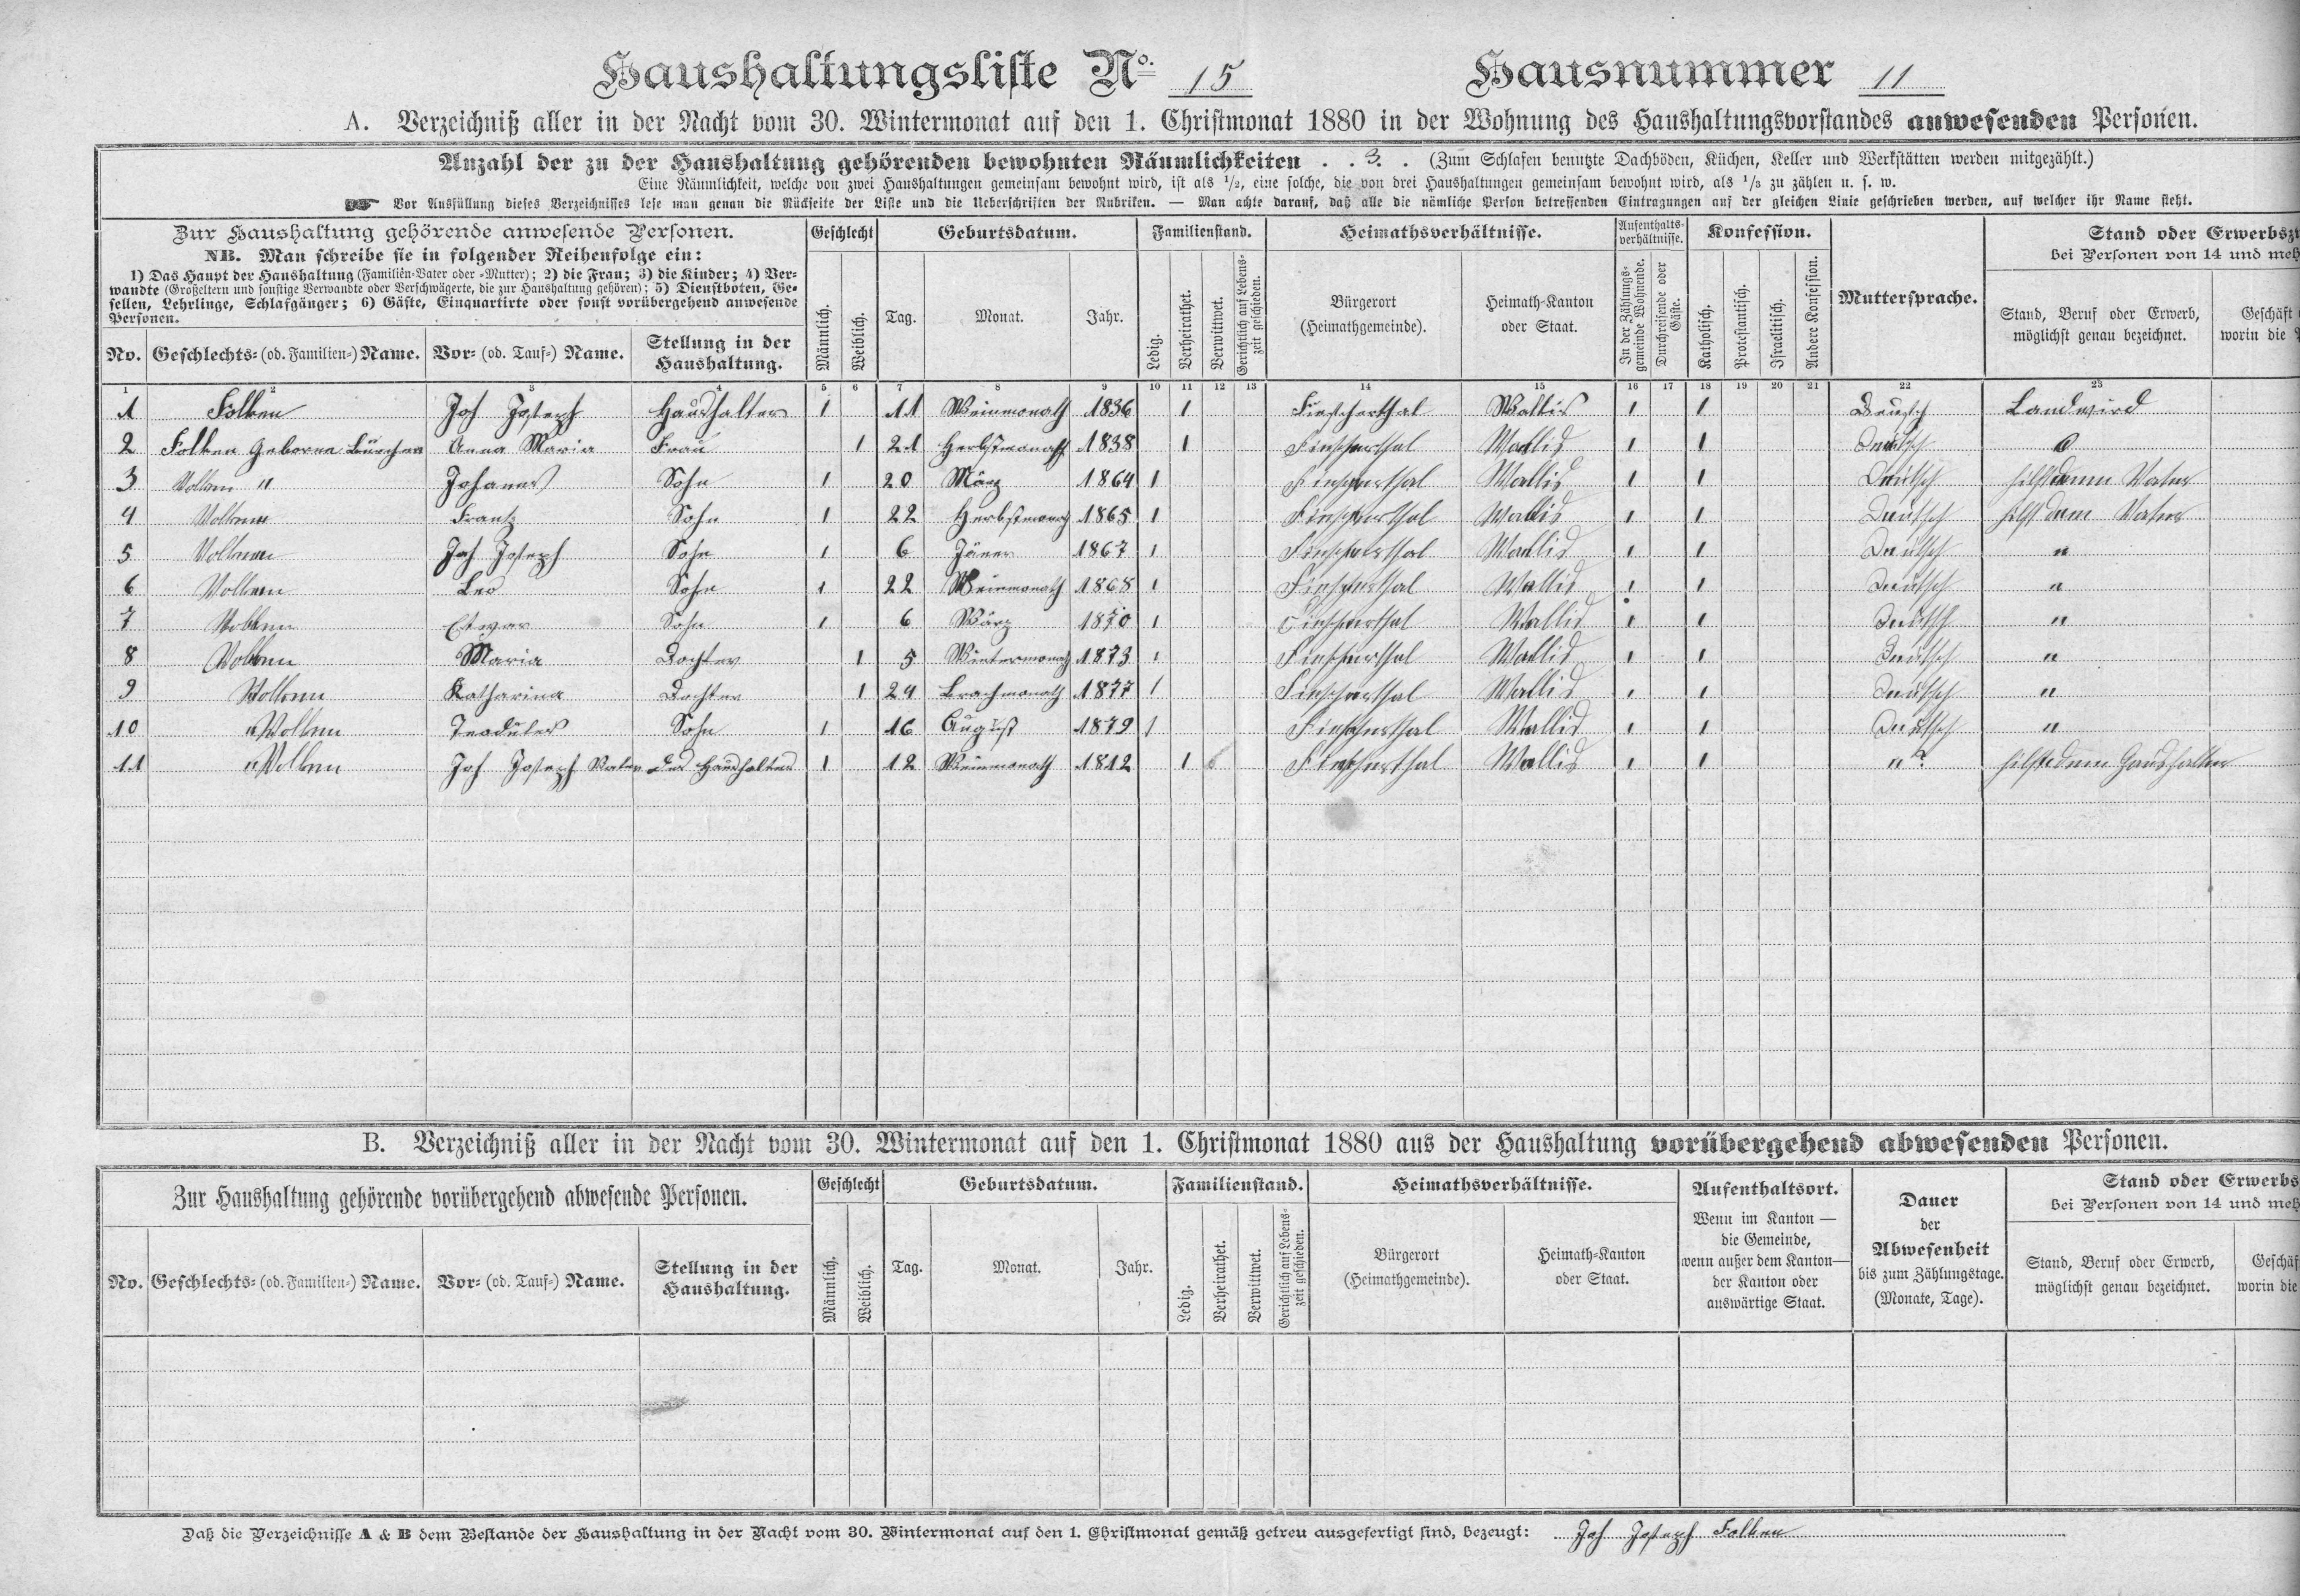 Haushaltungsliste No. 15 Hausnummer 11
A. Verzeichniß aller in der Nacht vom 30. Wintermonat auf den 1. Christmonat 1880 in der Wohnung des Haushaltungsvorstandes anwesenden Personen.
Anzahl der zu der Haushaltung gehörenden bewohnten Räumlichkeiten . . 3. . (Zum Schlafen benutzte Dachböden, Küchen, Keller und Werkstätten werden mitgezählt.)
Eine Räumlichkeit, welche von zwei Haushaltungen gemeinsam bewohnt wird, ist als 1/2, eine solche, die von drei Haushaltungen gemeinsam bewohnt wird, als 1/3 zu zählen u. s. w.
Vor Ausfüllung dieses Verzeichnisses lese man genau die Rückseite der Liste und die Ueberschriften der Rubriken. — Man achte darauf, daß alle die nämliche Person betreffenden Eintragungen auf der gleichen Linie geschrieben werden, auf welcher ihr Name steht.
Zur Haushaltung gehörende anwesende Personen.
NB. Man schreibe sie in folgender Reihenfolge ein:
1) Das Haupt der Haushaltung (Familien-Vater oder -Mutter); 2) die Frau; 3) die Kinder; 4) Ver-
wandte (Großeltern und sonstige Verwandte oder Verschwägerte, die zur Haushaltung gehören); 5) Dienstboten, Ge-
sellen, Lehrlinge, Schlafgänger; 6) Gäste, Einquartirte oder sonst vorübergehend anwesende
Personen.
No. Geschlechts- (od. Familien-) Name. Vor- (od. Tauf-) Name. Stellung in der
Haushaltung.
Geschlecht
Männlich. Weiblich.
Geburtsdatum.
Tag. Monat. Jahr.
Familienstand.
Ledig. Verheirathet. Verwittwet. Gerichtlich auf Lebens-
zeit geschieden.
Heimathsverhältnisse.
Bürgerort
(Heimathgemeinde).
Heimath-Kanton
oder Staat.
Aufenthalts-
verhältnisse.
In der Zählungs-
gemeinde Wohnende.
Durchreisende oder
Gäste.
Konfession.
Katholisch. Protestantisch. Israelitisch. Andere Konfession.
Muttersprache.
Stand oder Erwerbsz
bei Personen von 14 und meh
Stand, Beruf oder Erwerb,
möglichst genau bezeichnet.
Geschäft
worin die
1 2 3 4 5 6 7 8 9 10 11 12 13 14 15 16 17 18 19 20 21 22 23
1 Folken Joh Joseph Haushalter 1 11 Weinmonath 1836 1 Fiescherthal Wallis 1 1 Deutsch Landwird
2 Folken Geborne Anna Maria Frau 1 21 Herbstmonath 1838 1 Fiescherthal Wallis 1 1 Deutsch 0
3 Volken " Johannes Sohn 1 20 März 1864 1 Fiescherthal Wallis 1 1 Deutsch hilft dem Vater
4 Volken Frantz Sohn 1 22 Herbstmonath 1865 1 Fiescherthal Wallis 1 1 Deutsch hilft dem Vater
5 Volken Joh Joseph Sohn 1 6 Jäner 1867 1 Fiescherthal Wallis 1 1 Deutsch "
6 Volken Leo Sohn 1 22 Weinmonath 1868 1 Fiescherthal Wallis 1 1 Deutsch "
7 Volken Sohn 1 6 März 1870 1 Fiescherthal Wallis 1 1 Deutsch "
8 Volken Maria Dochter 1 5 Wintermonath 1873 1 Fiescherthal Wallis 1 1 Deutsch "
9 Volken Katharina Dochter 1 24 Brachmonath 1877 1 Fiescherthal Wallis 1 1 Deutsch "
10 " Volken Teodules Sohn 1 16 August 1879 1 Fiescherthal Wallis 1 1 Deutsch "
11 " Volken Joh Joseph Vater des Haushalters 1 12 Weinmonath 1812 1 Fiescherthal Wallis 1 1 " hilft dem Haushalter
B. Verzeichniß aller in der Nacht vom 30. Wintermonat auf den 1. Christmonat 1880 aus der Haushaltung vorübergehend abwesenden Personen.
Zur Haushaltung gehörende vorübergehend abwesende Personen.
No. Geschlechts- (od. Familien-) Name. Vor- (od. Tauf-) Name. Stellung in der
Haushaltung.
Geschlecht
Männlich. Weiblich.
Geburtsdatum.
Tag. Monat. Jahr.
Familienstand.
Ledig. Verheirathet. Verwittwet. Gerichtlich auf Lebens-
zeit geschieden.
Heimathsverhältnisse.
Bürgerort
(Heimathgemeinde).
Heimath-Kanton
oder Staat.
Aufenthaltsort.
Wenn im Kanton —
die Gemeinde,
wenn außer dem Kanton—
der Kanton oder
auswärtige Staat.
Dauer
der
Abwesenheit
bis zum Zählungstage.
(Monate, Tage).
Stand oder Erwerbs
bei Personen von 14 und meh
Stand, Beruf oder Erwerb,
möglichst genau bezeichnet.
Geschäf
worin die
Daß die Verzeichnisse A & B dem Bestande der Haushaltung in der Nacht vom 30. Wintermonat auf den 1. Christmonat gemäß getreu ausgefertigt sind, bezeugt: Joh Joseph Folken